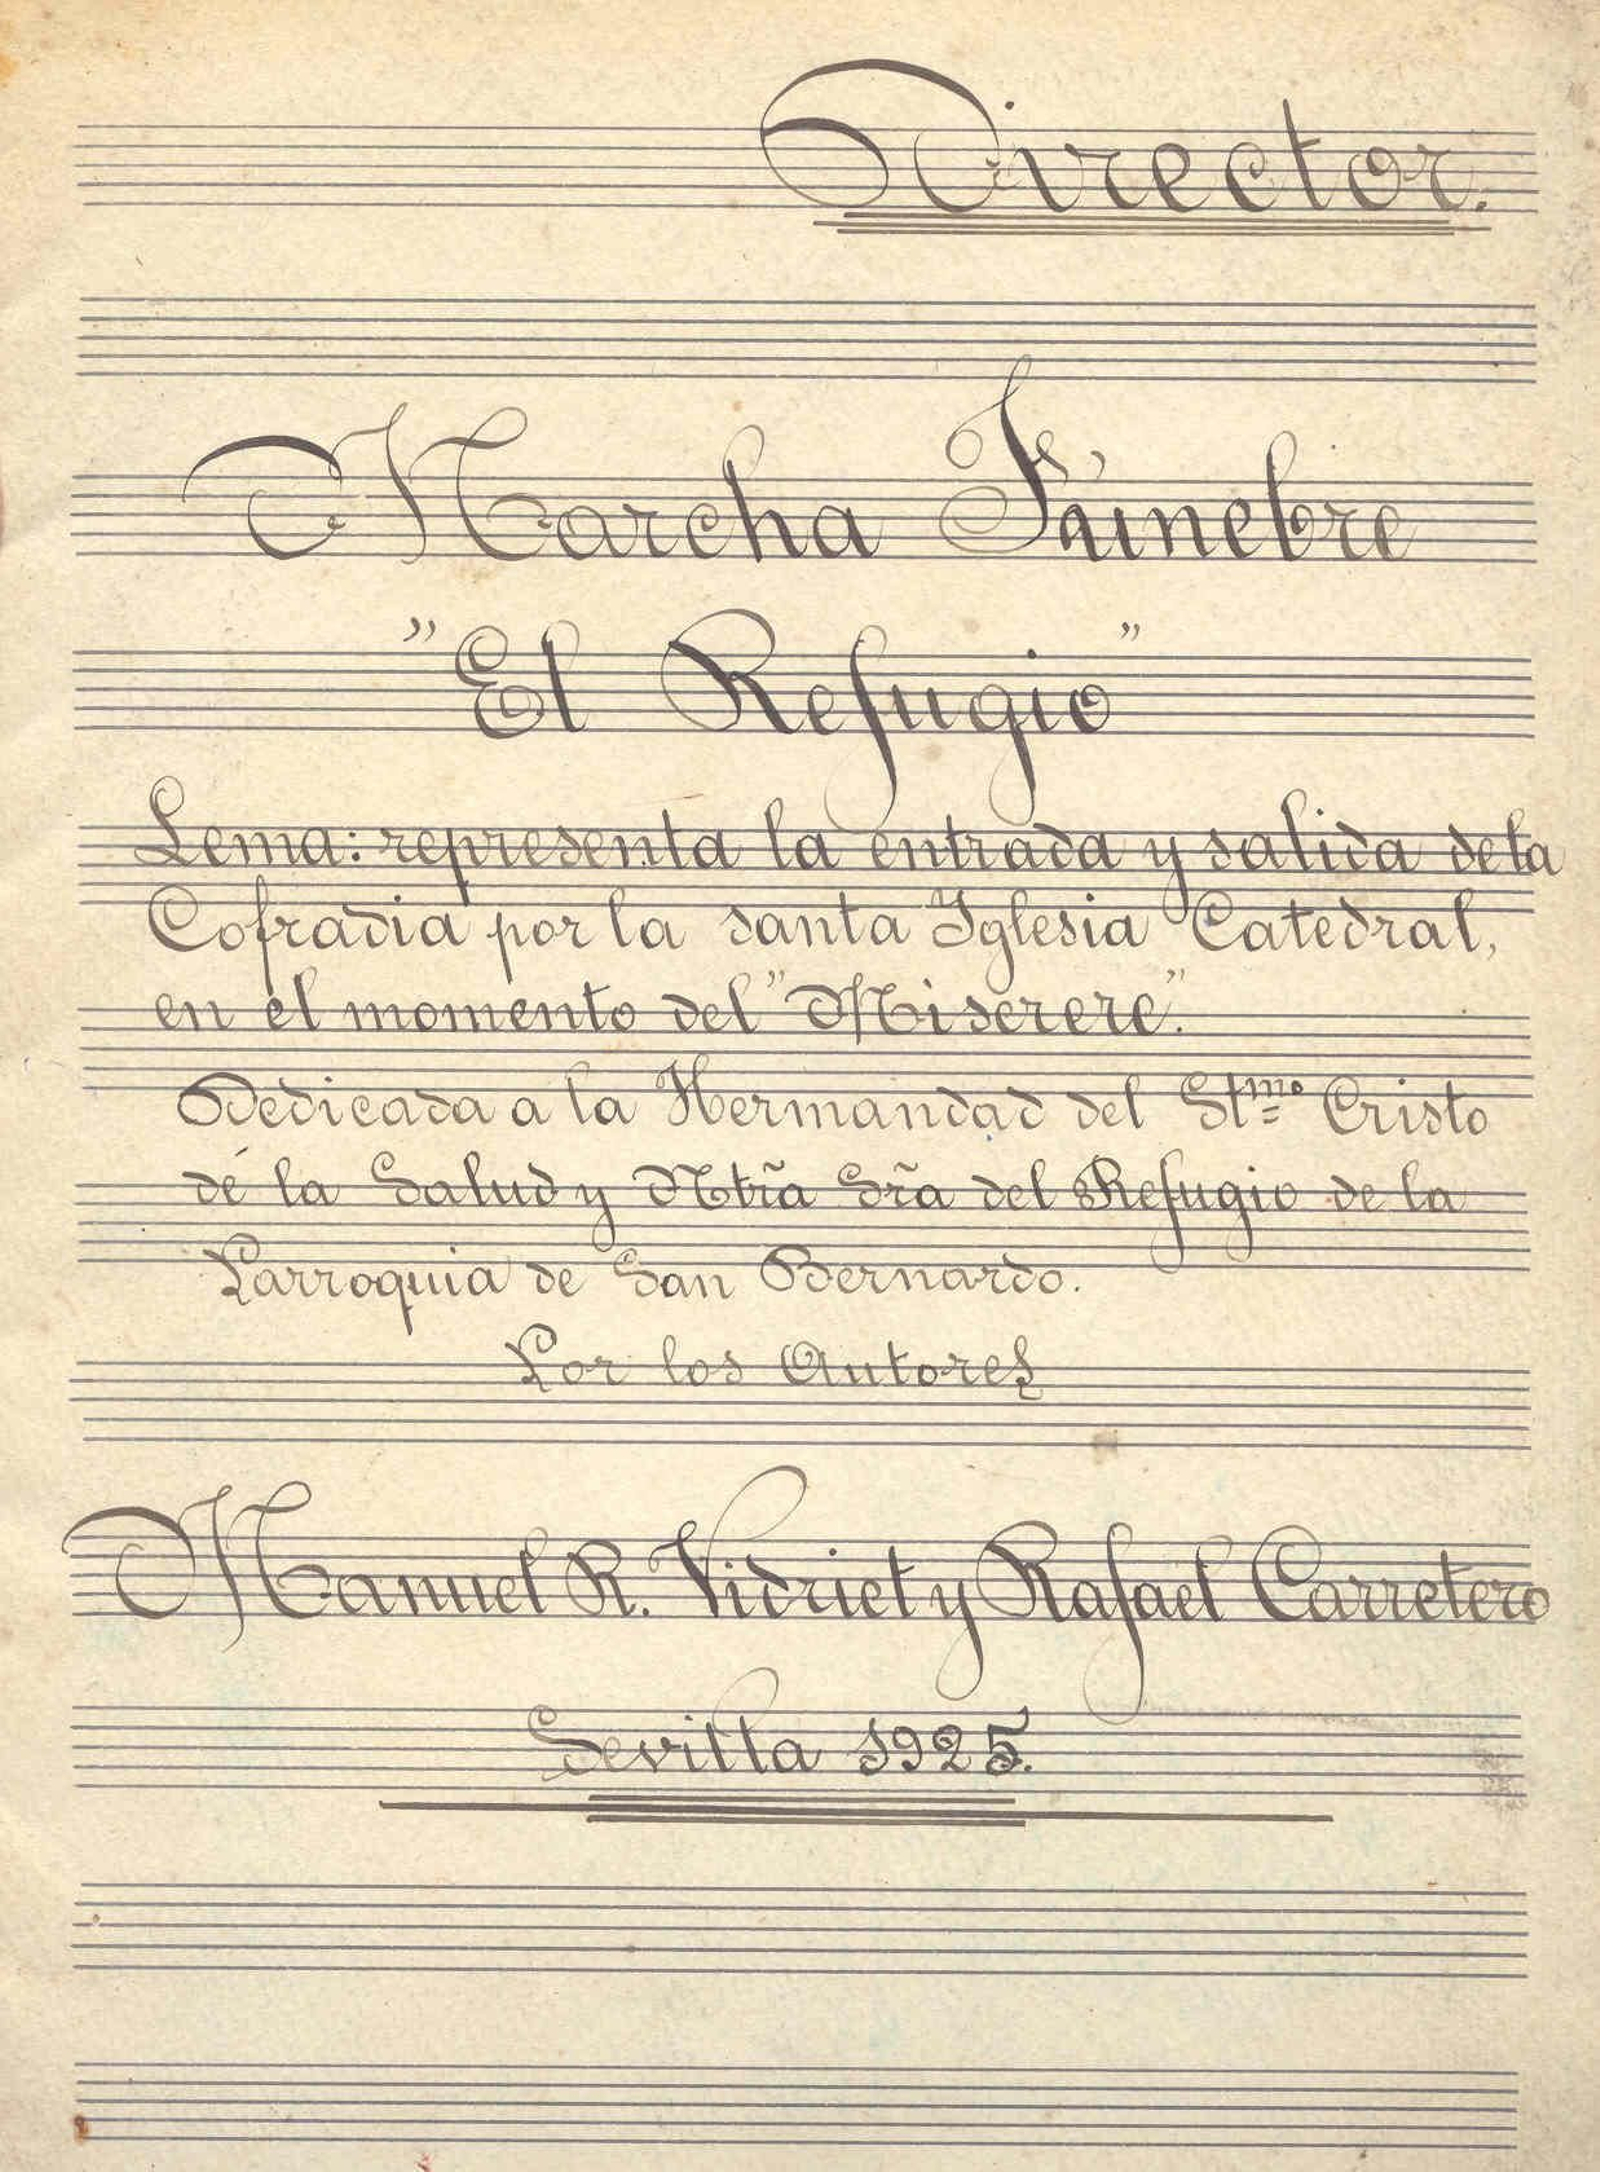 Director.
Marcha Fúnebre
"El Refugio"
Lema: representa la entrada y salida de la
Cofradia por la santa Iglesia Catedral,
en el momento del "Miserere".
Dedicada a la Hermandad del Stmo Cristo
dé la Salud y Ntrã Srã del Refugio de la
Parroquia de San Bernardo.
Por los Autores
Manuel R. Vidriet y Rafael Carretero
Sevilla 1925.